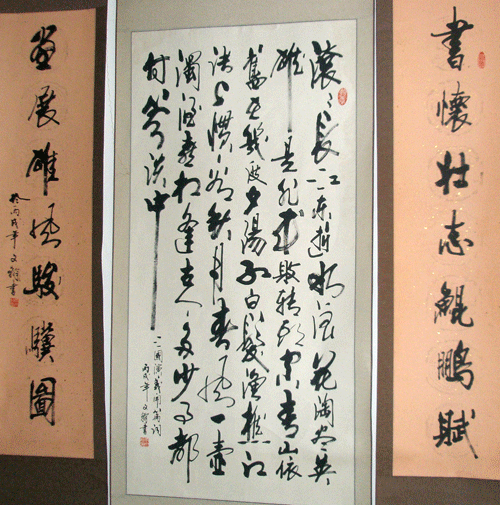 書懷壯志鯤鵬賦
滾〻長江東逝水浪花淘盡英
雄是非成敗轉頭空青山依
舊在幾度夕陽紅白髮漁樵江
渚上慣看秋月春風一壺
濁酒喜相逢古今多少事都
付笑談中
三國演義篇詞
丙戌年文書
畫展雄風駿驥圖
於丙戌年文書